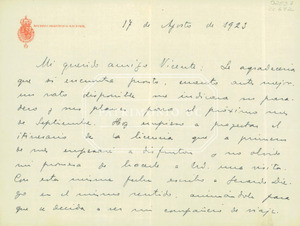 17 de Agosto de 1923
Mi querido amigo Vicente: Le agradecería
que si encuentra pronto, cuanto antes mejor,
un rato disponible me indicara su para-
dero y sus planes para el próximo mes
de Septiembre. Hoy empiezo a proyectar el
itinerario de la licencia que a primeros
de mes empezaré a disfrutar y no olvido
mi promesa de hacerle a Vd. una visita.
Con esta misma fecha escribo a Gerardo Die-
go en el mismo sentido, animándole para
que se decida a ser mi compañero de viaje.